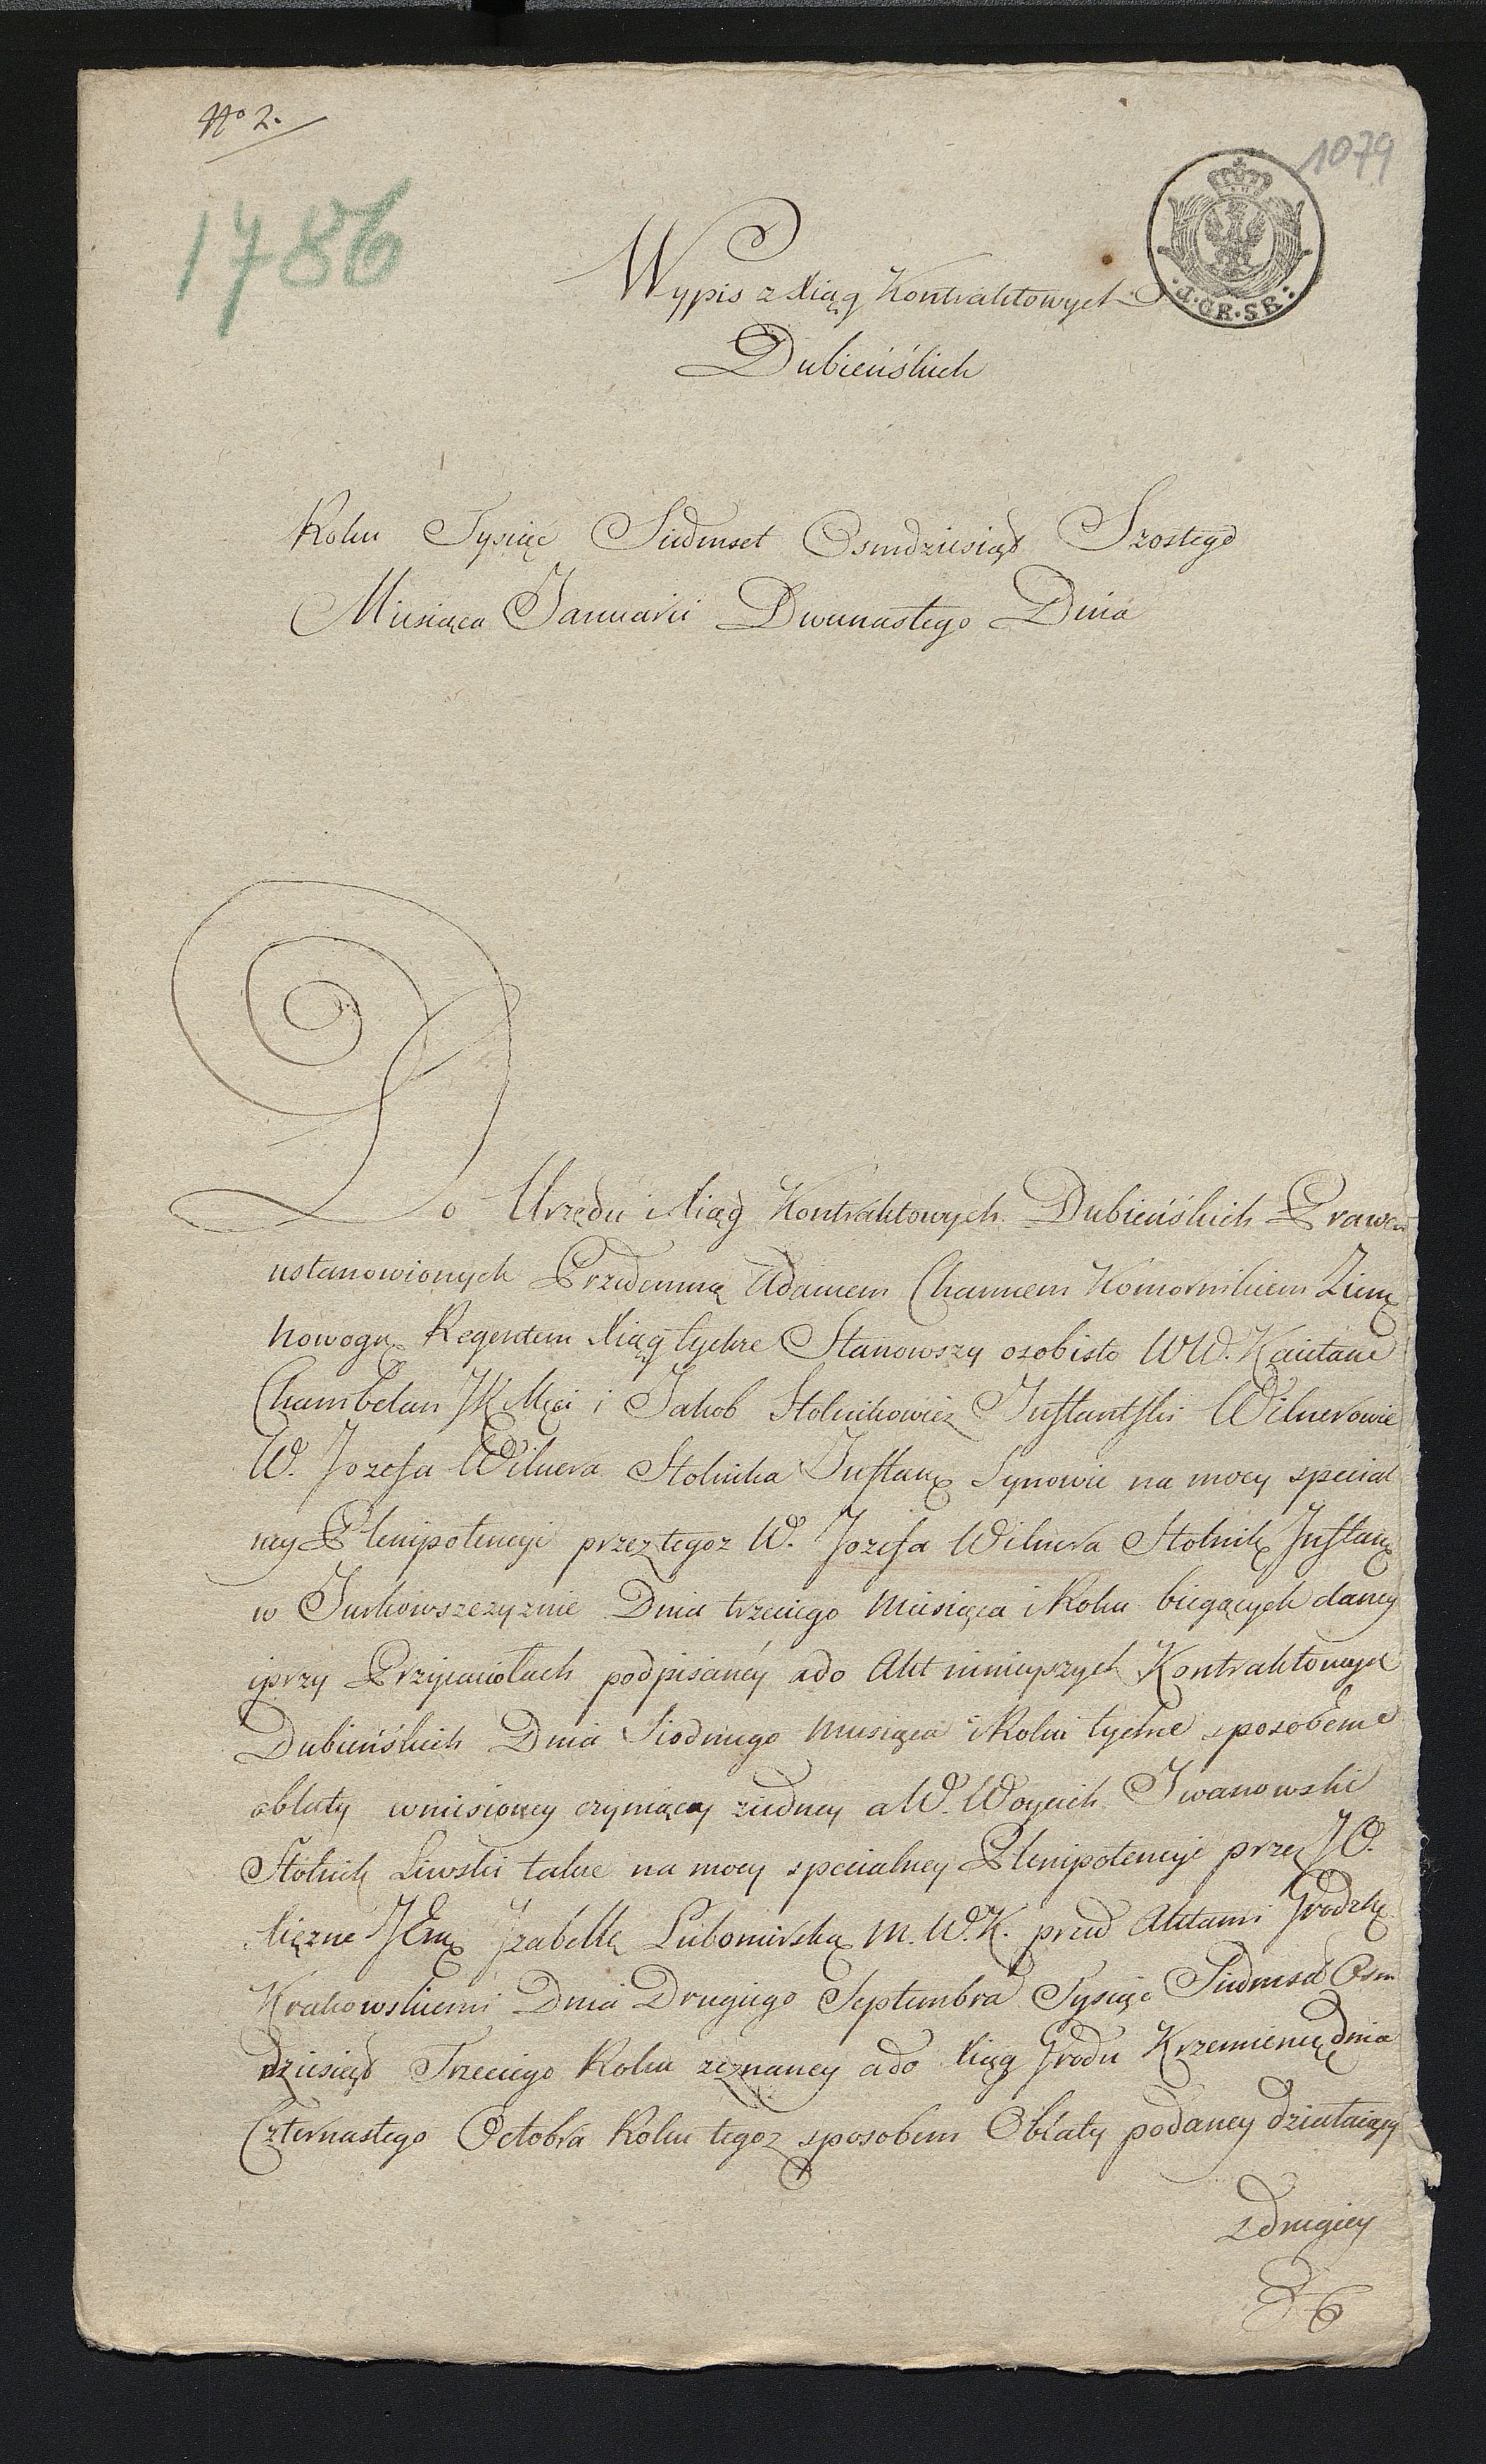 No 2.
1079
1786
1.GR.SR.
Wypis z Xiąg Kontraktowych
Dubieńskich
Roku Tysiąc Siedmset Osmdziesiąt Szostego
Miesiąca Januarii Dwunastego Dnia
Do Urzędu i Xiąg Kontraktowych Dubieńskich Prawem
ustanowionych Przedemną Adamem Channem Komornikiem Ziem
Nowogr. Regentem Xiąg tychże Stanowszy osobisto WW. Kaietan
Chambelan JKMęci i Jakob Stolnikowicz Inflantski Wilnerowie
W. Jozefa Wilnera Stolnika Inflan Synowie na mocy special
ney Plenipotencyi przez tegoz W. Jozefa Wilnera Stolnik Inflan
w Jurkowszczyznie Dnia trzeciego Miesiąca i Roku biegących daney
i przy Przyiaciołach podpisanéy ado Akt ninieyszych Kontraktowych
Dubieńskich Dnia Siodmego Miesiąca i Roku tychże sposobem
oblaty wniesioney czyniący ziedney a W. Woyciech Iwanowski
Stolnik Liwski takze na mocy specialney Plenipotencyi przez JO.
Xięzne JEm Izabellę Lubomirską M. W. K. przed Aktami Grodzk
Krakowskiemi Dnia Drugiego Septembra Tysiąc Siedmset Osm
dziesiąt Trzeciego Roku zeznaney ado Xiąg Grodu Krzemienie dnia
Czternastego Octobra Roku tegoz sposobem Oblaty podaney działaiący
zdrugiey